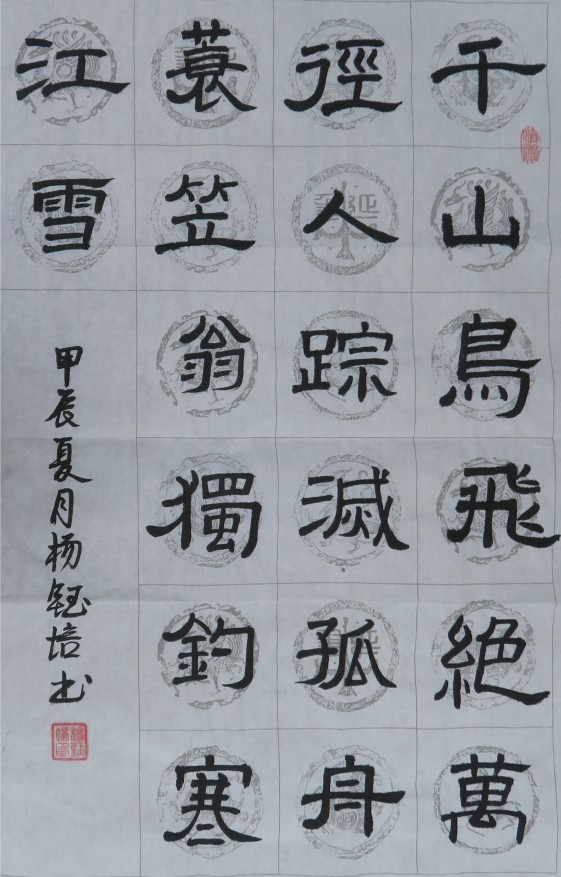 千山鳥飛絕萬
徑人踪滅孤舟
蓑笠翁獨釣寒
江雪
甲辰夏月杨钰培书